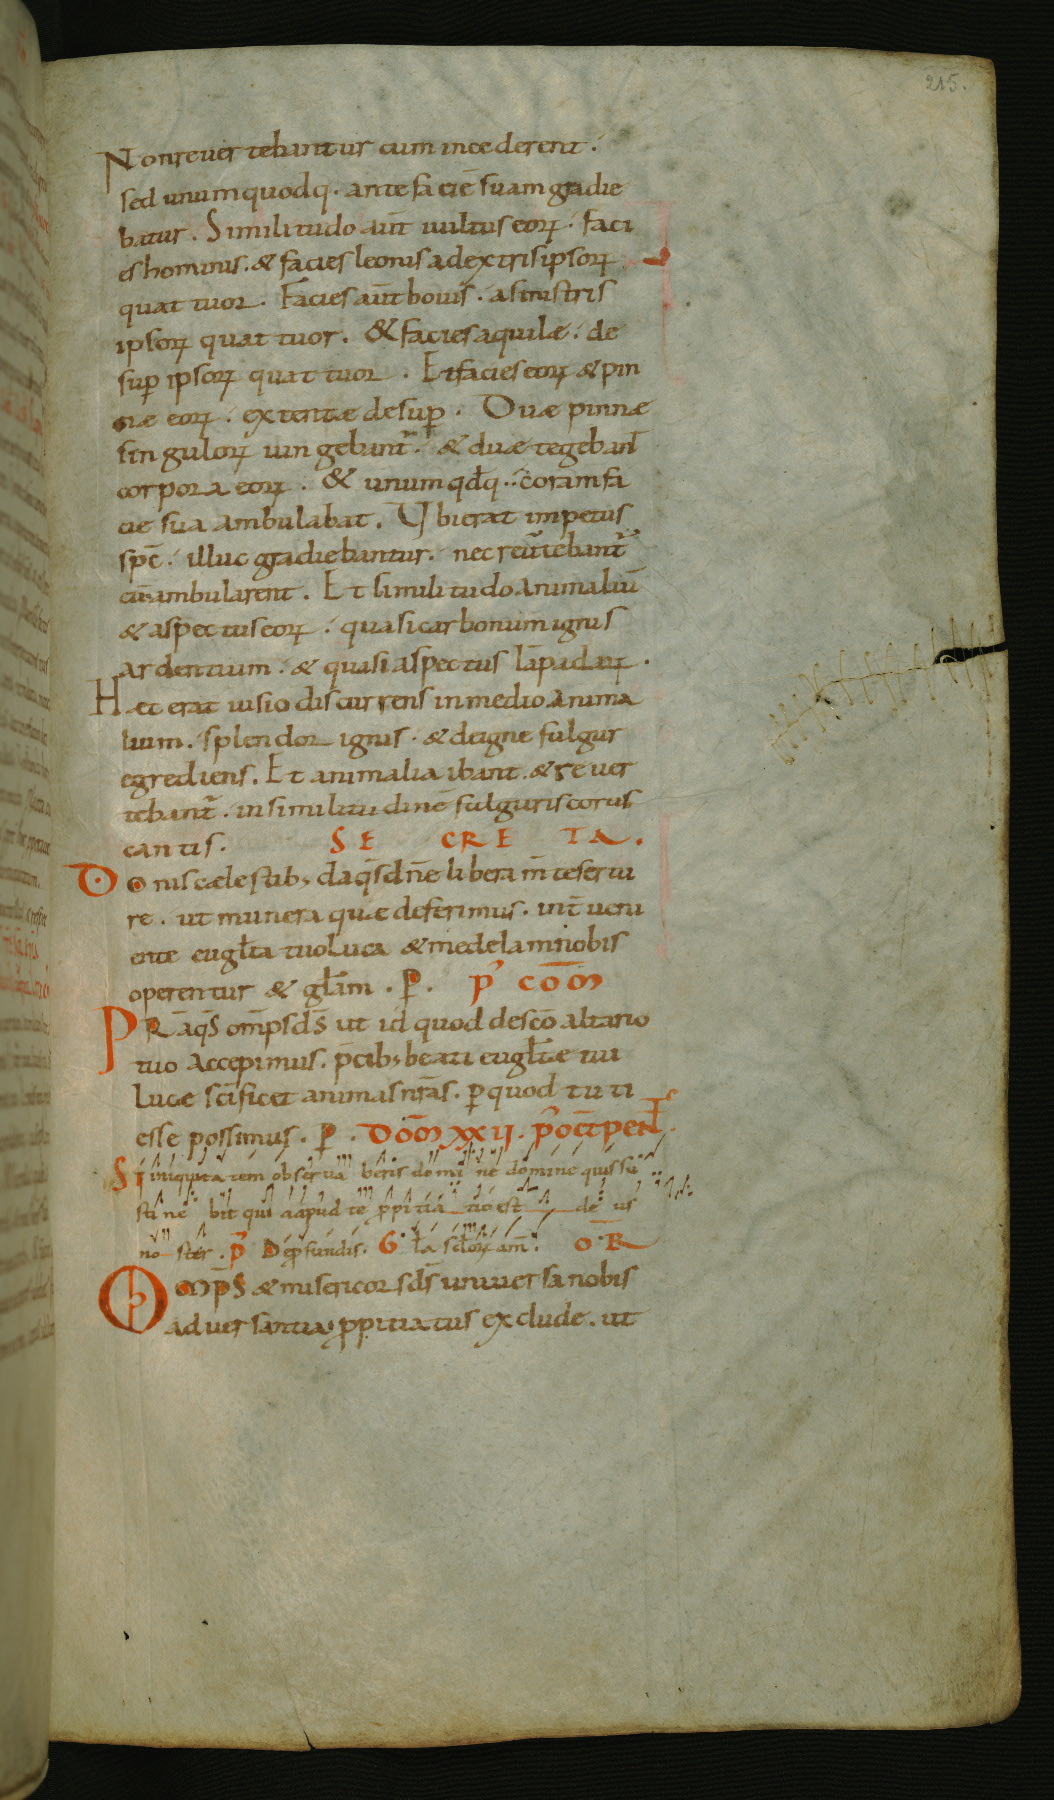 215.
Non reuertebantur cum incederent.
sed unumquodq· ante faciē suam gradie
batur. Similitudo aūt uultus eoꝝ. faci
es hominis. & facies leonis a dextris ipsoꝝ
quattuor. Facies aūt bouis. a sinistris
ipsoꝝ quattuor. & facies aquilæ. de
sup̄ ipsoꝝ quattuor. Et facies eoꝝ & pin
næ eoꝝ. extentæ desup̄. Duæ pinnæ
singuloꝝ iungebant᷒. & duæ tegebant᷒
corpora eoꝝ. & unumqdq·. coram fa
cie sua ambulabat. Ubi erat impetus
spc̄. illuc gradiebantur. nec reūtebant᷒
cū ambularent. Et similitudo animaliū
& aspectus eoꝝ. quasi carbonum ignis
ardentium. & quasi aspectus lāpadaꝝ.
Hæc erat uisio discurrens in medio anima
lium. splendor ignis. & de igne fulgur
egrediens. Et animalia ibant & reuer
tebant᷒. in similitudinē fulguris corus
cantis. SECRETA.
Donis cælestib; da qs dn̄e libera m̄te serui
re. ut munera quæ deferimus. int̄ueni
ente eugl̄ta tuo Luca & medelam nobis
operentur & gl̄am. P̄. P᷒ COM̄
PRā qs om̄ps ds̄ ut id quod de sc̄o altario
tuo accepimus. p̄cib; beati eugl̄tæ tui
Lucæ sc̄ificet animas nr̄as. p̄ quod tuti
esse possimus. P̄. DOM̄ XXII. P᷒ OCT̄ PENT̄.
Si iniquitatem obserua ueris domine domine quis su
stinebit quia apud te p̄pitiatio est deus
noster. P᷒ De p̄fundis. G l̄a scl̄oꝝ am̄. OR̄
OMP̄S & misericors ds̄ uniuersa nobis
aduersantia p̄pitiatus exclude. ut